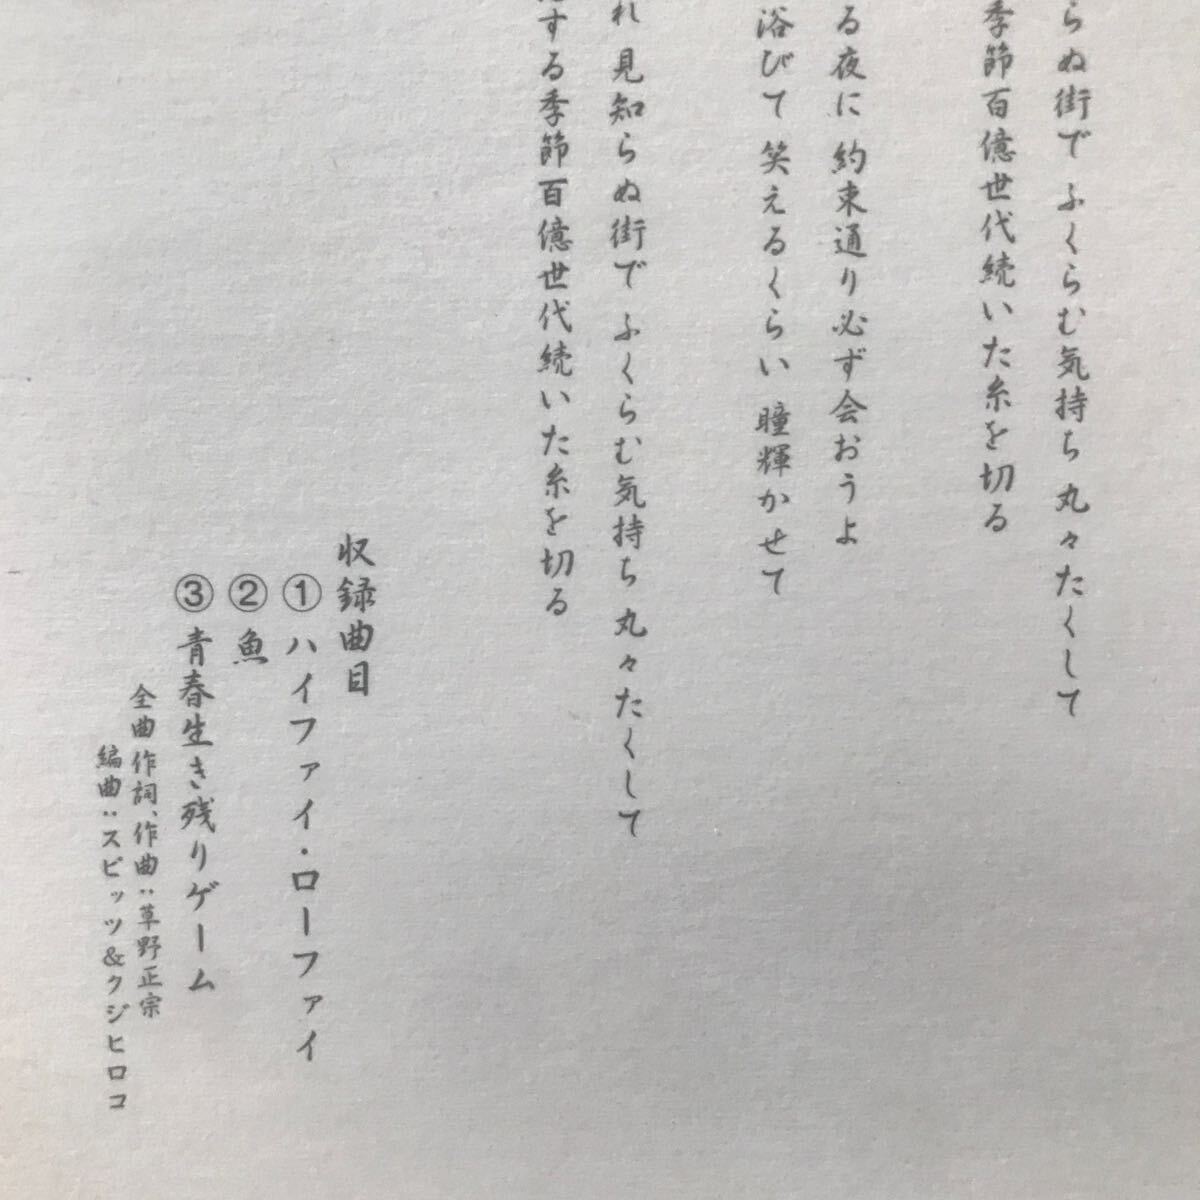 らぬ街で ふくらむ気持ち 丸々たくして
季節百億世代続いた糸を切る
る夜に 約束通り必ず会おうよ
浴びて 笑えるくらい 瞳輝かせて
れ 見知らぬ街で ふくらむ気持ち 丸々たくして
する季節百億世代続いた糸を切る
収録曲目
① ハイファイ・ローファイ
② 魚
③ 青春生き残りゲーム
全曲作詞、作曲：草野正宗
編曲：スピッツ&クジヒロコ